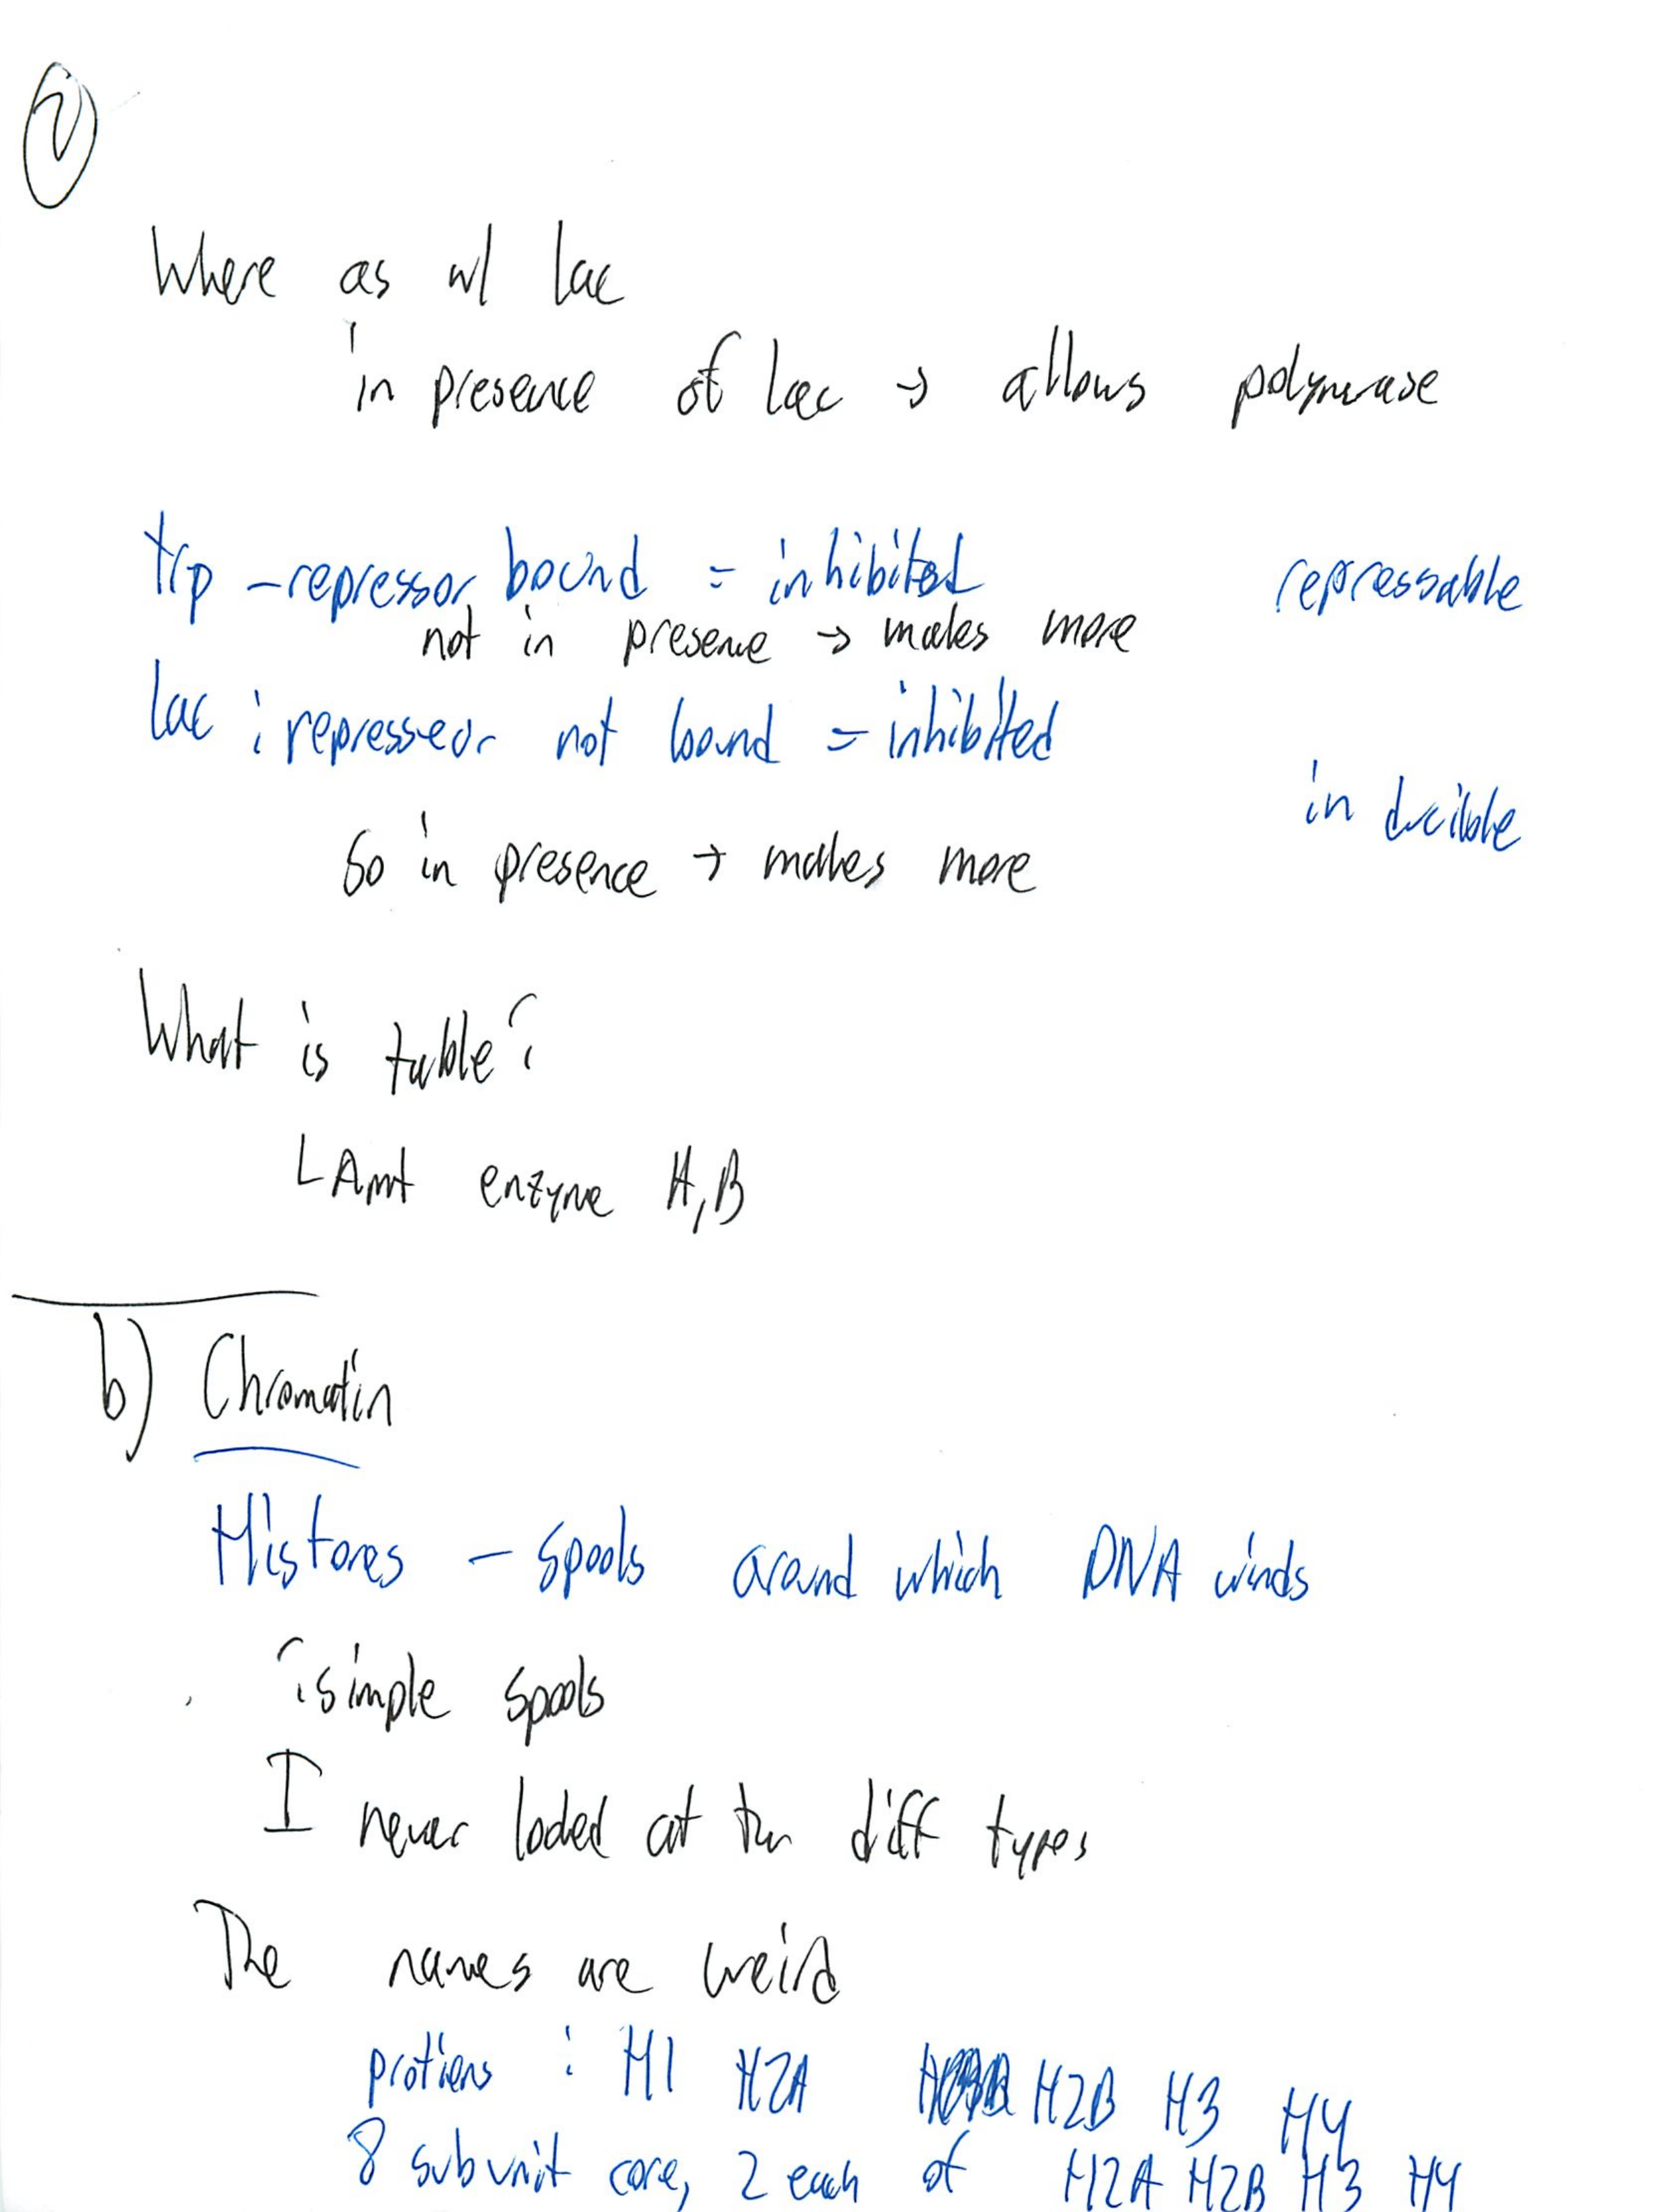 2
Where as w/ lac
in presence of lac → allows polymerase
trp - repressor bound = inhibited repressable
not in presence → makes more
lac : repressor not bound = inhibited
in ducible
So in presence → makes more
What is table?
LAmt enzyme A,B
b) Chromatin
Histones - spools around which DNA winds
simple spools
I never looked at the diff types
The names are weird
protiens : H1 H2A H2B H3 H4
8 subunit core, 2 each of H2A H2B H3 H4